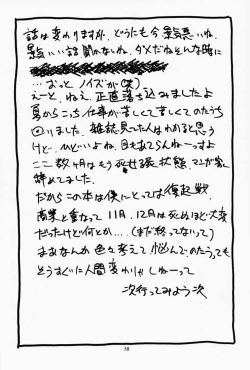 話は変わりますが、どうにも今景気悪いね。
景気いい話聞かないね、ダメだねそんな時に
…おっとノイズが(笑)
えーと、ねえ、正直落ち込みましたよ
夏からこっち仕事が苦しくて苦しくてのたうち
回りました。雑誌見てた人はわかると思う
けど…ひどいよね、目もあてらんねーっすよ
ここ数ヶ月はもう死せる孫状態、マンガ家
辞めてました。
だからこの本は僕にとっては復起戦。
商業と重なって11月、12月は死ぬほど大変
だったけど何とか…(まだ終ってないって)
まあなんか色々考えて悩んでのたうっても
そうすぐに人間変わりゃしねーって
次行ってみよう次
38